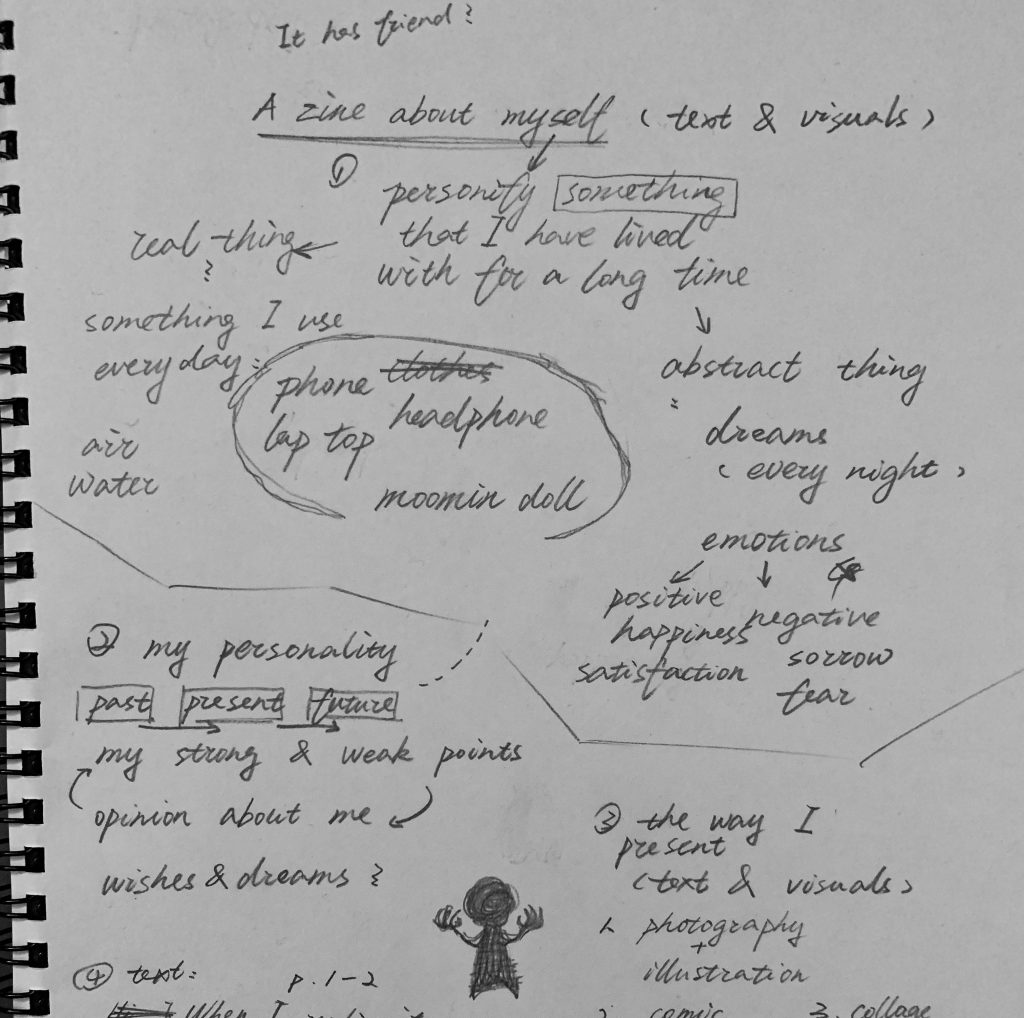 It has friend?
A zine about myself (text & visuals)
① personify something
that I have lived
with for a long time
real thing
something I use
everyday:
phone clothes
lap top headphone
moomin doll
air
water
abstract thing
:
dreams
(every night)
emotions
positive
happiness
satisfaction
negative
sorrow
fear
② my personality
past present future
my strong & weak points
opinion about me
wishes & dreams
③ the way I
present
(text & visuals)
1. photography
+
illustration
2. comic 3. collage
④ text: p. 1-2
When I